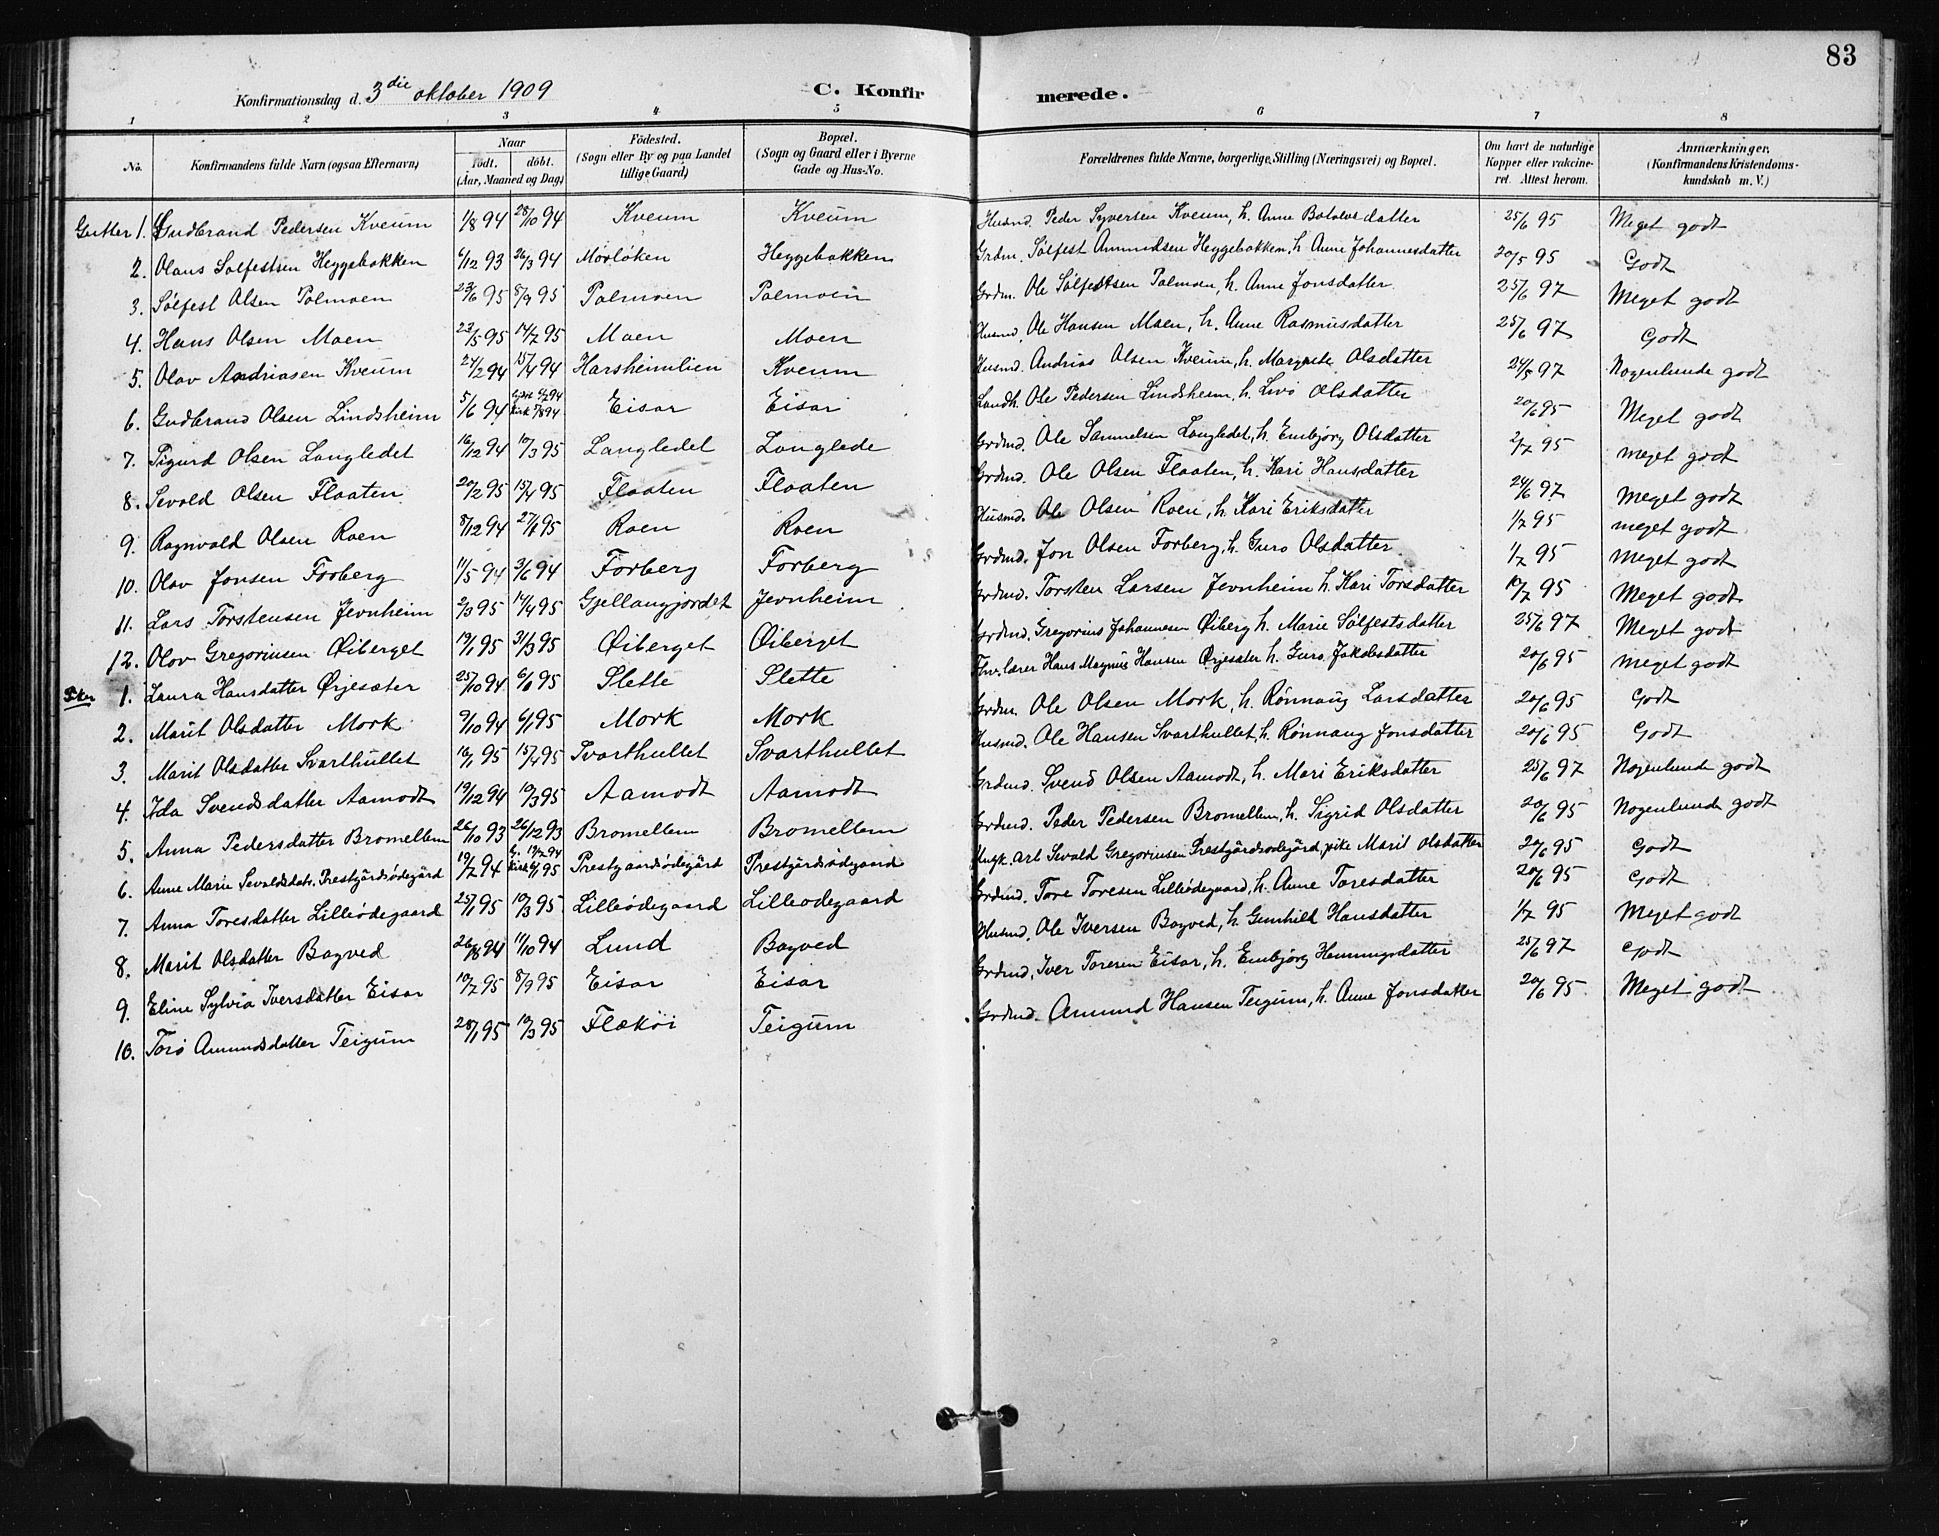 83
Konfirmationsdag d. 3die oktober 1909 C. Konfirmerede.
1 2 3 4 5 6 7 8
No. Konfirmandens fulde Navn (ogsaa Efternavn) Naar födt. döbt. (Aar, Maaned og Dag) Födested. (Sogn eller By og paa Landet tillige Gaard) Bopæl. (Sogn og Gaard eller i Byerne Gade og Hus-No. Forældrenes fulde Navne, borgerlige Stilling (Næringsvei) og Bopæl. Om havt de naturlige Kopper eller vakcineret. Attest herom. Anmærkninger, (Konfirmandens Kristendomskundskab m. V.)
Gutter 1. Gudbrand Pedersen Kveum 1/8 94 28/10 94 Kveum Kveum Husmd. Peder Syversen Kveum, h. Anne Botolvsdatter 25/6 95 Meget godt
2. Olaus Sølfestsen Heggebakken 6/12 93 26/3 94 Mørløken Heggebakken Grdm. Sølfest Amundsen Heggebakken, h. Anne Johannesdatter 20/5 95 Godt
3. Sølfest Olsen Palmoen 23/6 95 8/9 95 Palmoen Palmoen Grdm. Ole Sølfestsen Palmoen, h. Anne Jonsdatter 25/6 97 Meget godt
4. Hans Olsen Moen 23/5 95 14/7 95 Moen Moen Husmd. Ole Hansen Moen, h. Anne Rasmusdatter 25/6 97 Godt
5. Olav Andriasen Kveum 21/2 94 15/4 94 Harsheimlien Kveum Husmd. Andrias Olsen Kveum, h. Margrete Olsdatter 24/5 97 Nogenlunde godt
6. Gudbrand Olsen Lindsheim 5/6 94 Eisar Eisar Landh. Ole Pedersen Lindsheim, h. Livø Olsdatter 20/6 95 Meget godt
7. Sigurd Olsen Langledet 16/12 94 10/3 95 Langledet Langlede Grdmd. Ole Samuelsen Langledet, h. Embjørg Olsdatter 2/7 95 meget godt
8. Sevald Olsen Flaaten 20/2 95 15/4 95 Flaaten Flaaten Grdmd. Ole Olsen Flaaten, h. Kari Hansdatter 24/6 97 Meget godt
9. Ragnvald Olsen Roen 8/12 94 27/1 95 Roen Roen Husmd. Ole Olsen Roen, h. Kari Eriksdatter 1/7 95 meget godt
10. Olav Jonsen Forberg 11/5 94 3/6 94 Forberg Forberg Grdmd. Jon Olsen Forberg, h. Guro Olsdatter 1/7 95 Meget godt
11. Lars Torstensen Jevnheim 2/3 95 14/4 95 Gjellangjordet Jevnheim Grdmd. Torsten Larsen Jevnheim h. Kari Torsdatter 10/7 95 Meget godt
12. Olov Gregoriusen Øiberget 19/1 95 31/3 95 Øiberget Øiberget Grdmd. Gregorius Johannesen Øiberg h. Marie Sølfestsdatter 25/6 97 Meget godt
Piker 1. Laura Hansdatter Ørjesæter 25/10 94 6/1 95 Slette Slette Fhv. lærer Hans Magnus Hansen Ørjesæter h. Guro Jakobsdatter 20/6 95 meget godt
2. Marit Olsdatter Mork 9/10 94 6/1 95 Mork Mork Grdm. Ole Olsen Mork, h. Rønnaug Larsdatter 20/6 95 Godt
3. Marit Olsdatter Svarthullet 16/1 95 15/4 95 Svarthullet Svarthullet Husmd. Ole Hansen Svarthullet, h. Rønnaug Jonsdatter 20/6 95 Godt
4. Ida Svendsdatter Aamodt 19/12 94 10/3 95 Aamodt Aamodt Grdmd. Svend Olsen Aamodt, h. Mari Eriksdatter 25/6 97 Nogenlunde godt
5. Anna Pedersdatter Bromellem 26/10 93 26/12 93 Bromellem Bromellem Grdmd. Peder Pedersen Bromellem, h. Sigrid Olsdatter 20/6 95 Nogenlunde godt
6. Anne Marie Sevaldsdatr. Prestgårdsødegård 19/7 94 Prestgaardsødegård Prestgårdsødgaard Ungk. arb Sevald Gregoriusen Prestgårdsødegård, pike Marit Olsdatter 20/6 95 Godt
7. Anna Toresdatter Lilleødegaard 25/1 95 10/3 95 Lilleødegaard Lilleødegaard Grdmd. Tore Toresen Lilleødegaard, h. Anne Toresdatter 20/6 95 Godt
8. Marit Olsdatter Bagved 26/8 94 11/10 94 Lund Bagved Husmd. Ole Iversen Bagved, h. Gunhild Hansdatter 1/7 95 Meget godt
9. Eline Sylvia Iversdatter Eisar 10/7 95 8/9 95 Eisar Eisar Grdmd. Iver Toresen Eisar, h. Embjørg Hemmingsdatter 25/6 97 Godt
10. Torø Amundsdatter Teigum 28/1 95 10/3 95 Flækøi Teigum Grdmd. Amund Hansen Teigum, h. Anne Jonsdatter 20/6 95 Meget godt